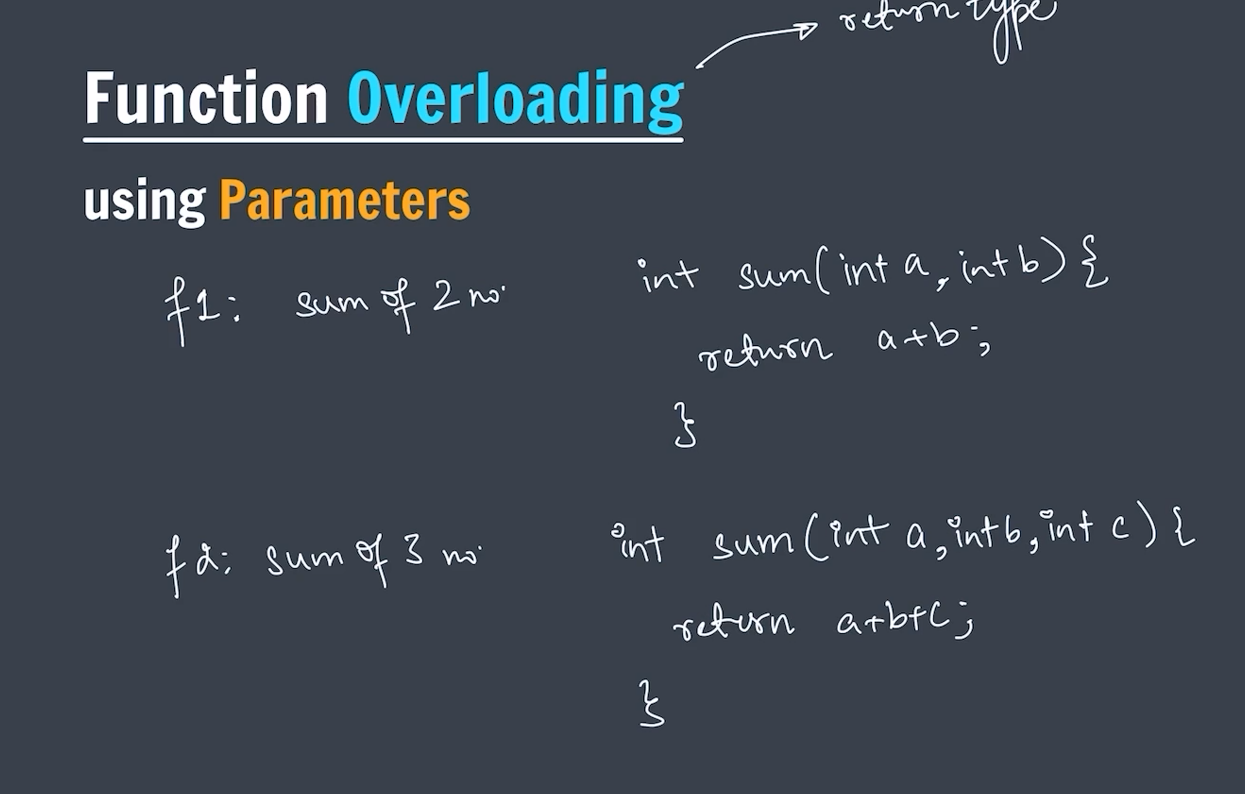 return type
Function Overloading
using Parameters
f1: sum of 2 no.
int sum(int a, int b) {
return a+b;
}
f2: sum of 3 no.
int sum(int a, int b, int c) {
return a+b+c;
}